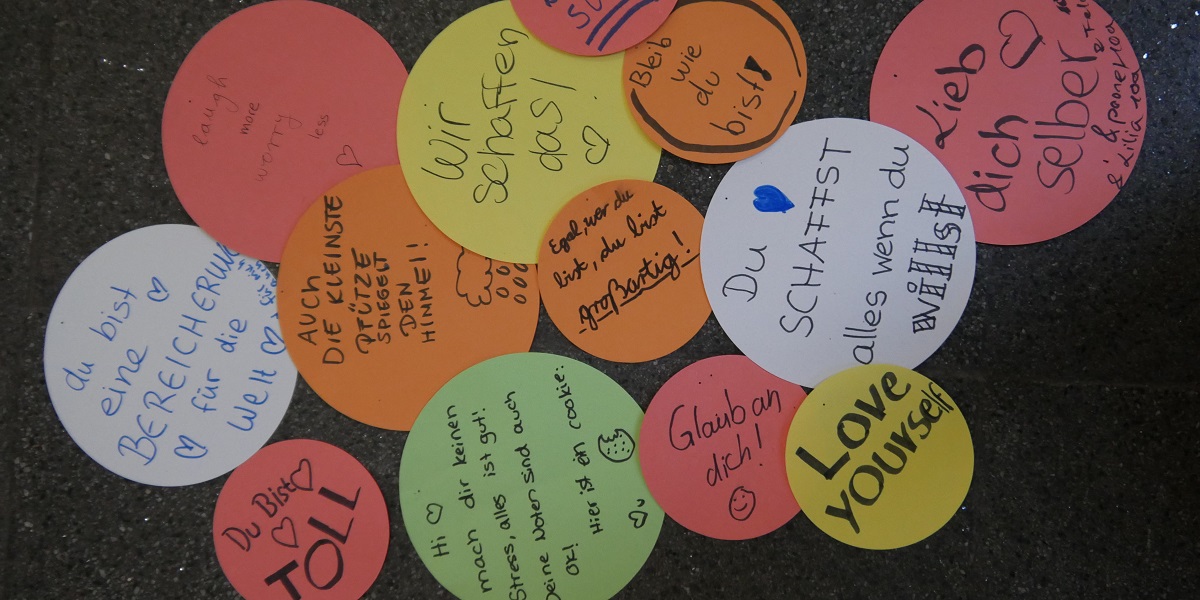 laugh
more
worry
less
Wir
schaffen
das!
Bleib
wie
du
bist!
Lieb
dich
selber
du bist
eine
BEREICHERUNG
für die
Welt
AUCH
DIE KLEINSTE
PFÜTZE
SPIEGELT
DEN
HIMMEL!
Egal, wer du
bist, du bist
großartig!
Du
SCHAFFST
alles wenn du
WillSt
Hi
mach dir keinen
Stress, alles ist gut!
Deine Noten sind auch
OK! Hier ist ein cookie:
Glaub an
dich!
LOVE
YOURSELF
Du Bist
TOLL